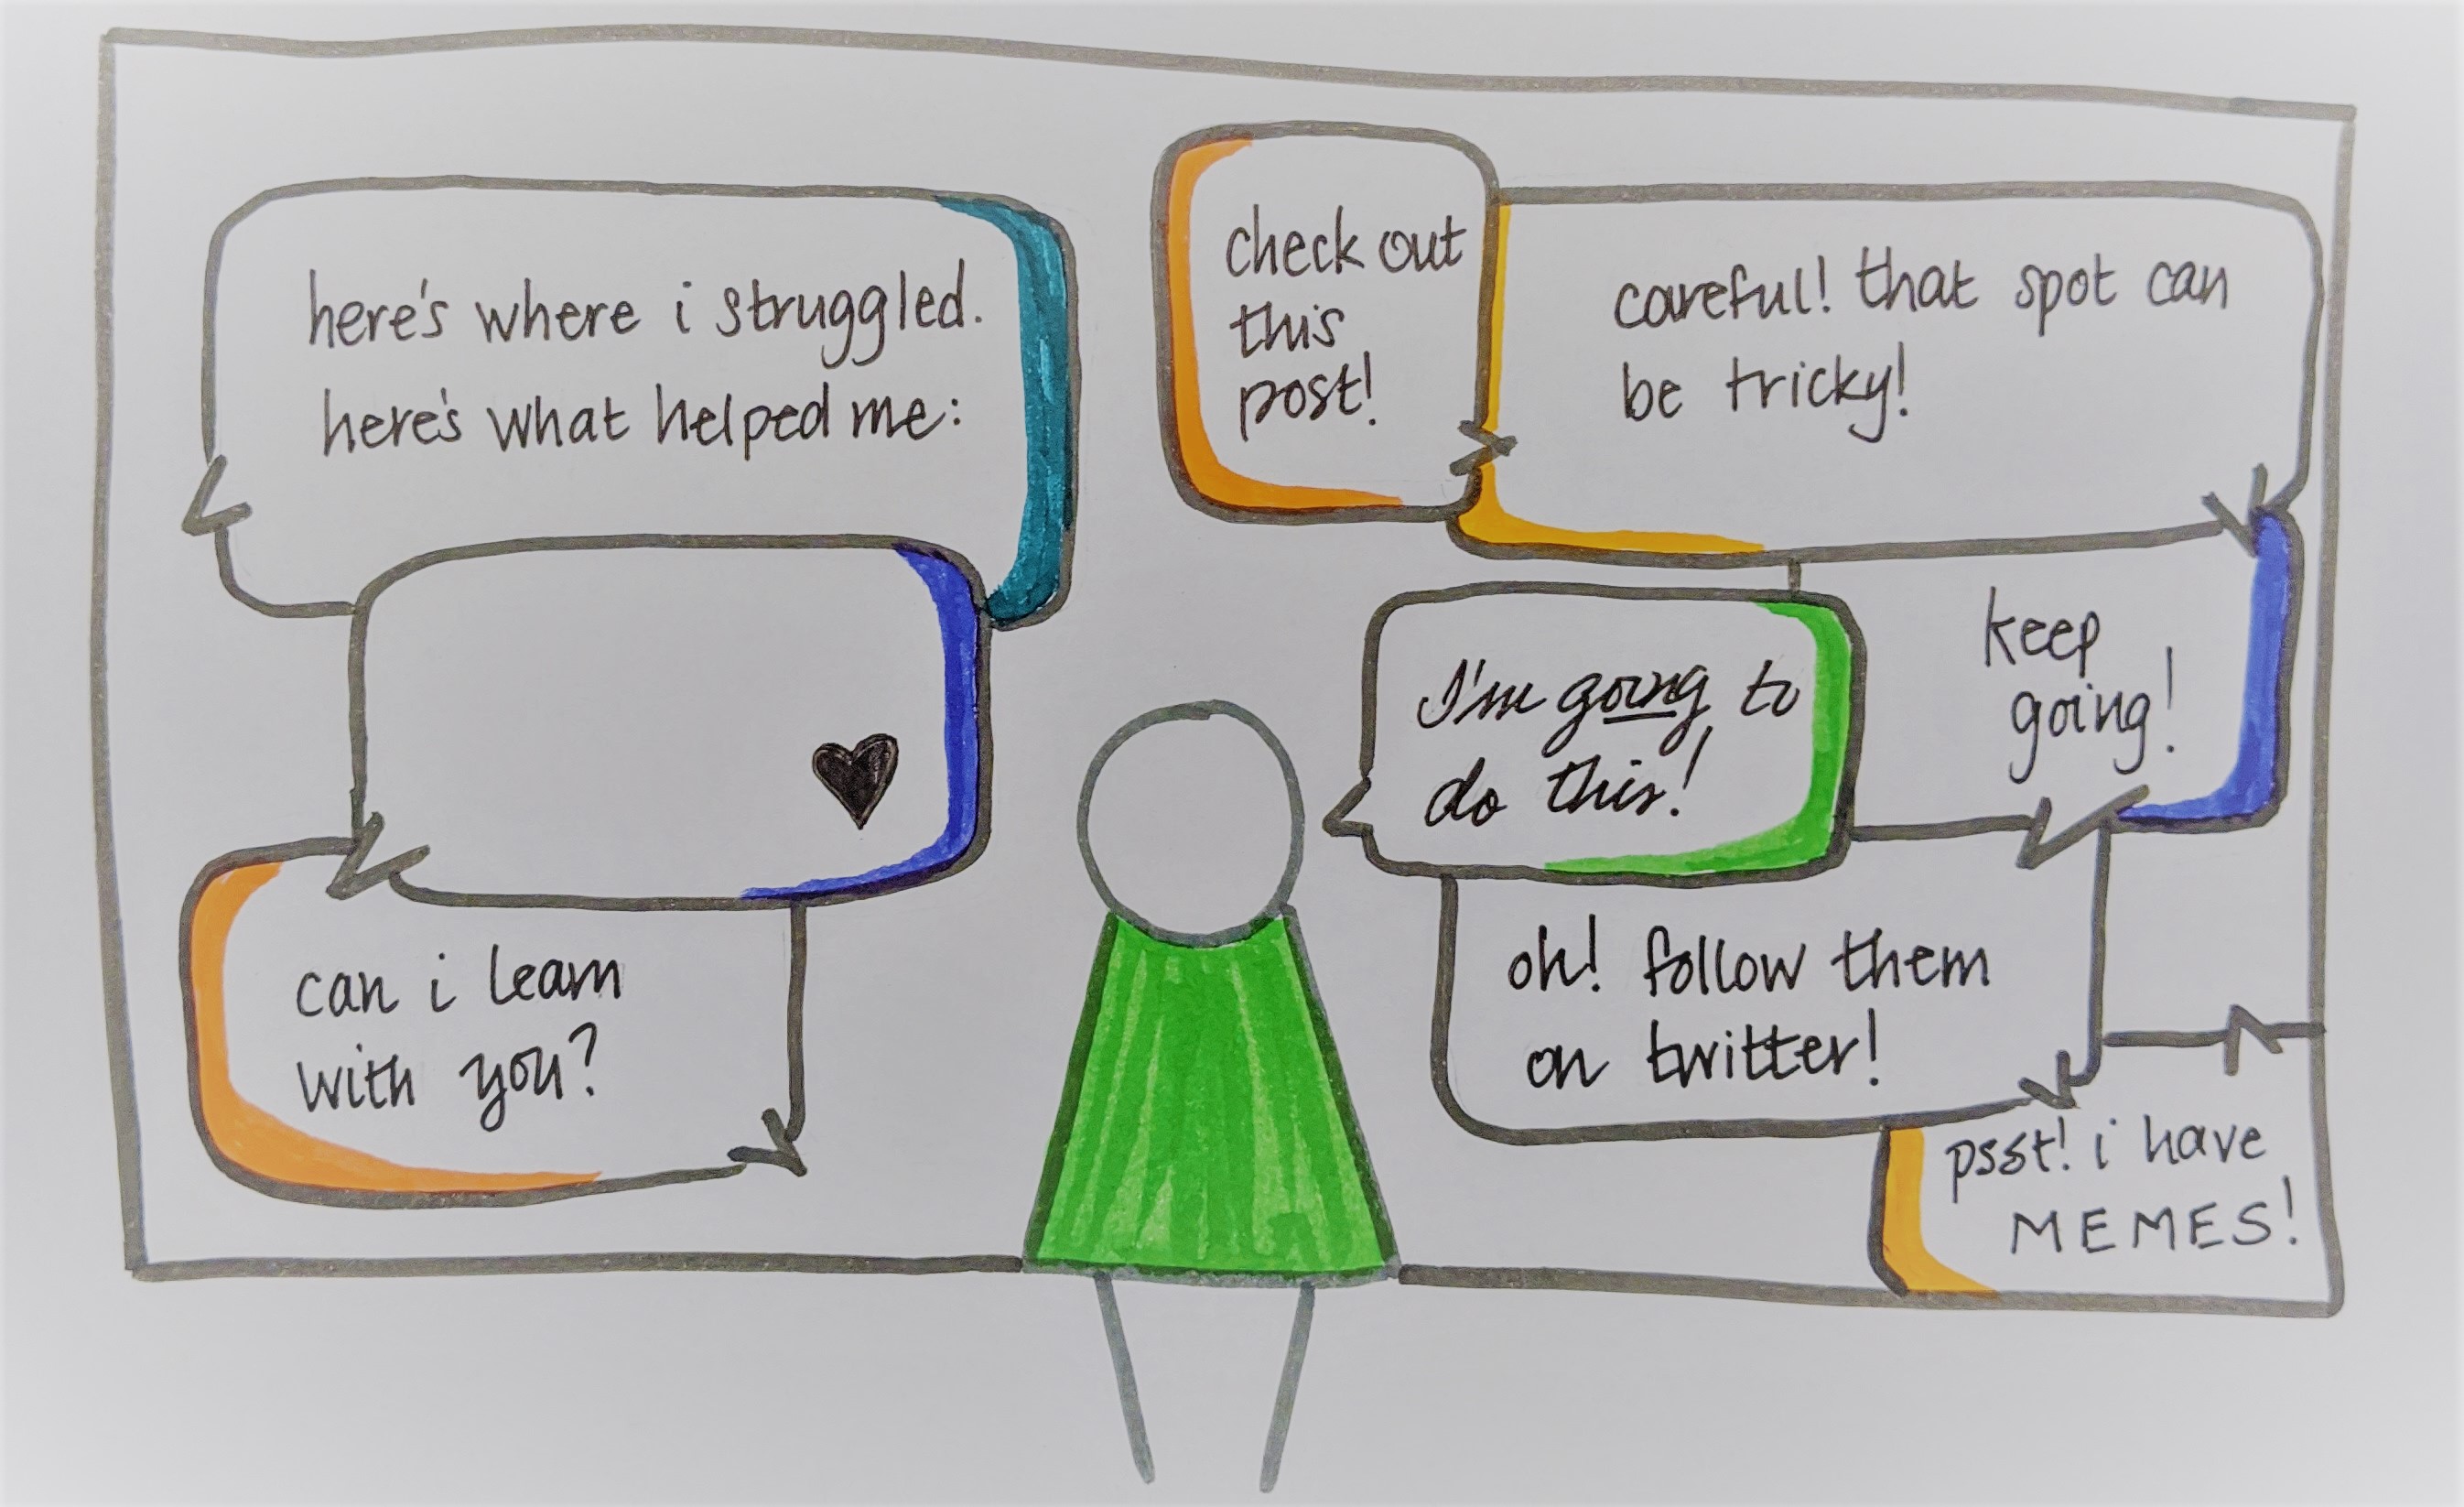 here's where i struggled.
here's what helped me:
can i learn
with you?
check out
this
post!
careful! that spot can
be tricky!
I'm going to
do this!
keep
going!
oh! follow them
on twitter!
psst! i have
MEMES!